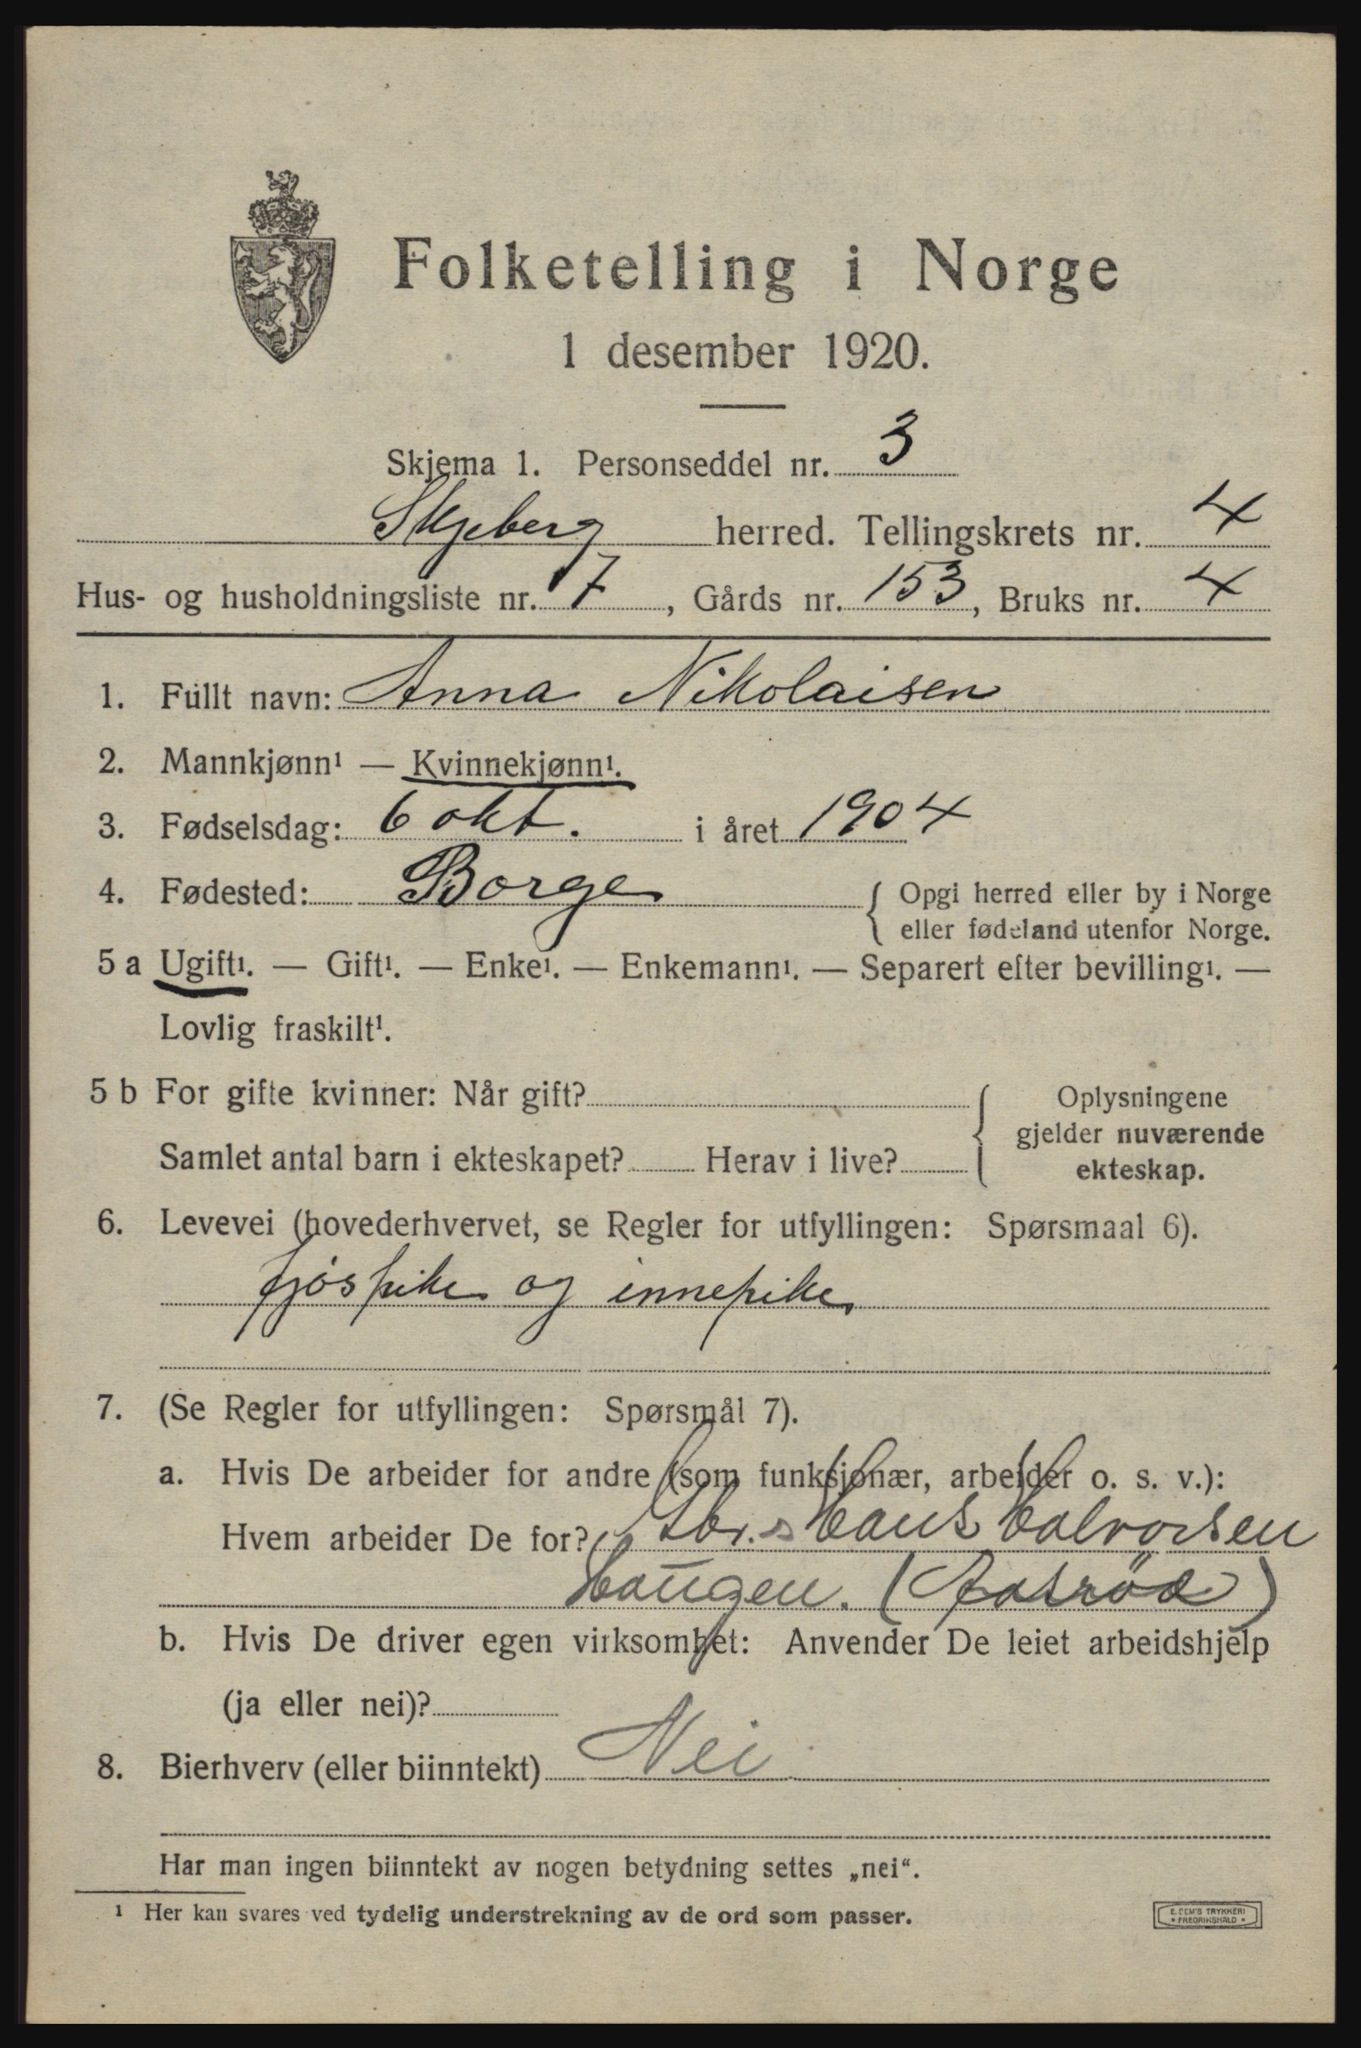 Folketelling i Norge
1 desember 1920.
Skjema 1. Personseddel nr. 3
Skjeberg herred. Tellingskrets nr. 4
Hus- og husholdningsliste nr. 7, Gårds nr. 153, Bruks nr. 4
1. Fullt navn: Anna Nikolaisen
2. Mannkjønn¹ — Kvinnekjønn¹.
3. Fødselsdag: 6 okt. i året 1904
4. Fødested: Borge { Opgi herred eller by i Norge
eller fødeland utenfor Norge.
5 a Ugift¹. — Gift¹. — Enke¹. — Enkemann¹. — Separert efter bevilling¹. —
Lovlig fraskilt¹.
5 b For gifte kvinner: Når gift? { Oplysningene
gjelder nuværende
Samlet antal barn i ekteskapet? Herav i live? ekteskap.
6. Levevei (hovederhvervet, se Regler for utfyllingen: Spørsmaal 6).
fjøspike og innepike
7. (Se Regler for utfyllingen: Spørsmål 7).
a. Hvis De arbeider for andre (som funksjonær, arbeider o. s. v.):
Hvem arbeider De for? Gbr.s Hans Halvorsen
Haugen. (
)
b. Hvis De driver egen virksomhet: Anvender De leiet arbeidshjelp
(ja eller nei)?
8. Bierhverv (eller biinntekt) Nei
Har man ingen biinntekt av nogen betydning settes „nei“.
¹ Her kan svares ved tydelig understrekning av de ord som passer.
E. SEM'S TRYKKERI
FREDRIKSHALD